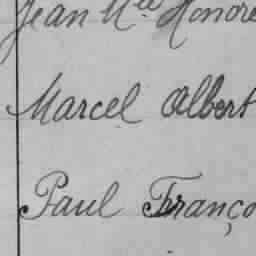 Jean Mce Honoré
Marcel Albert
Paul Franço